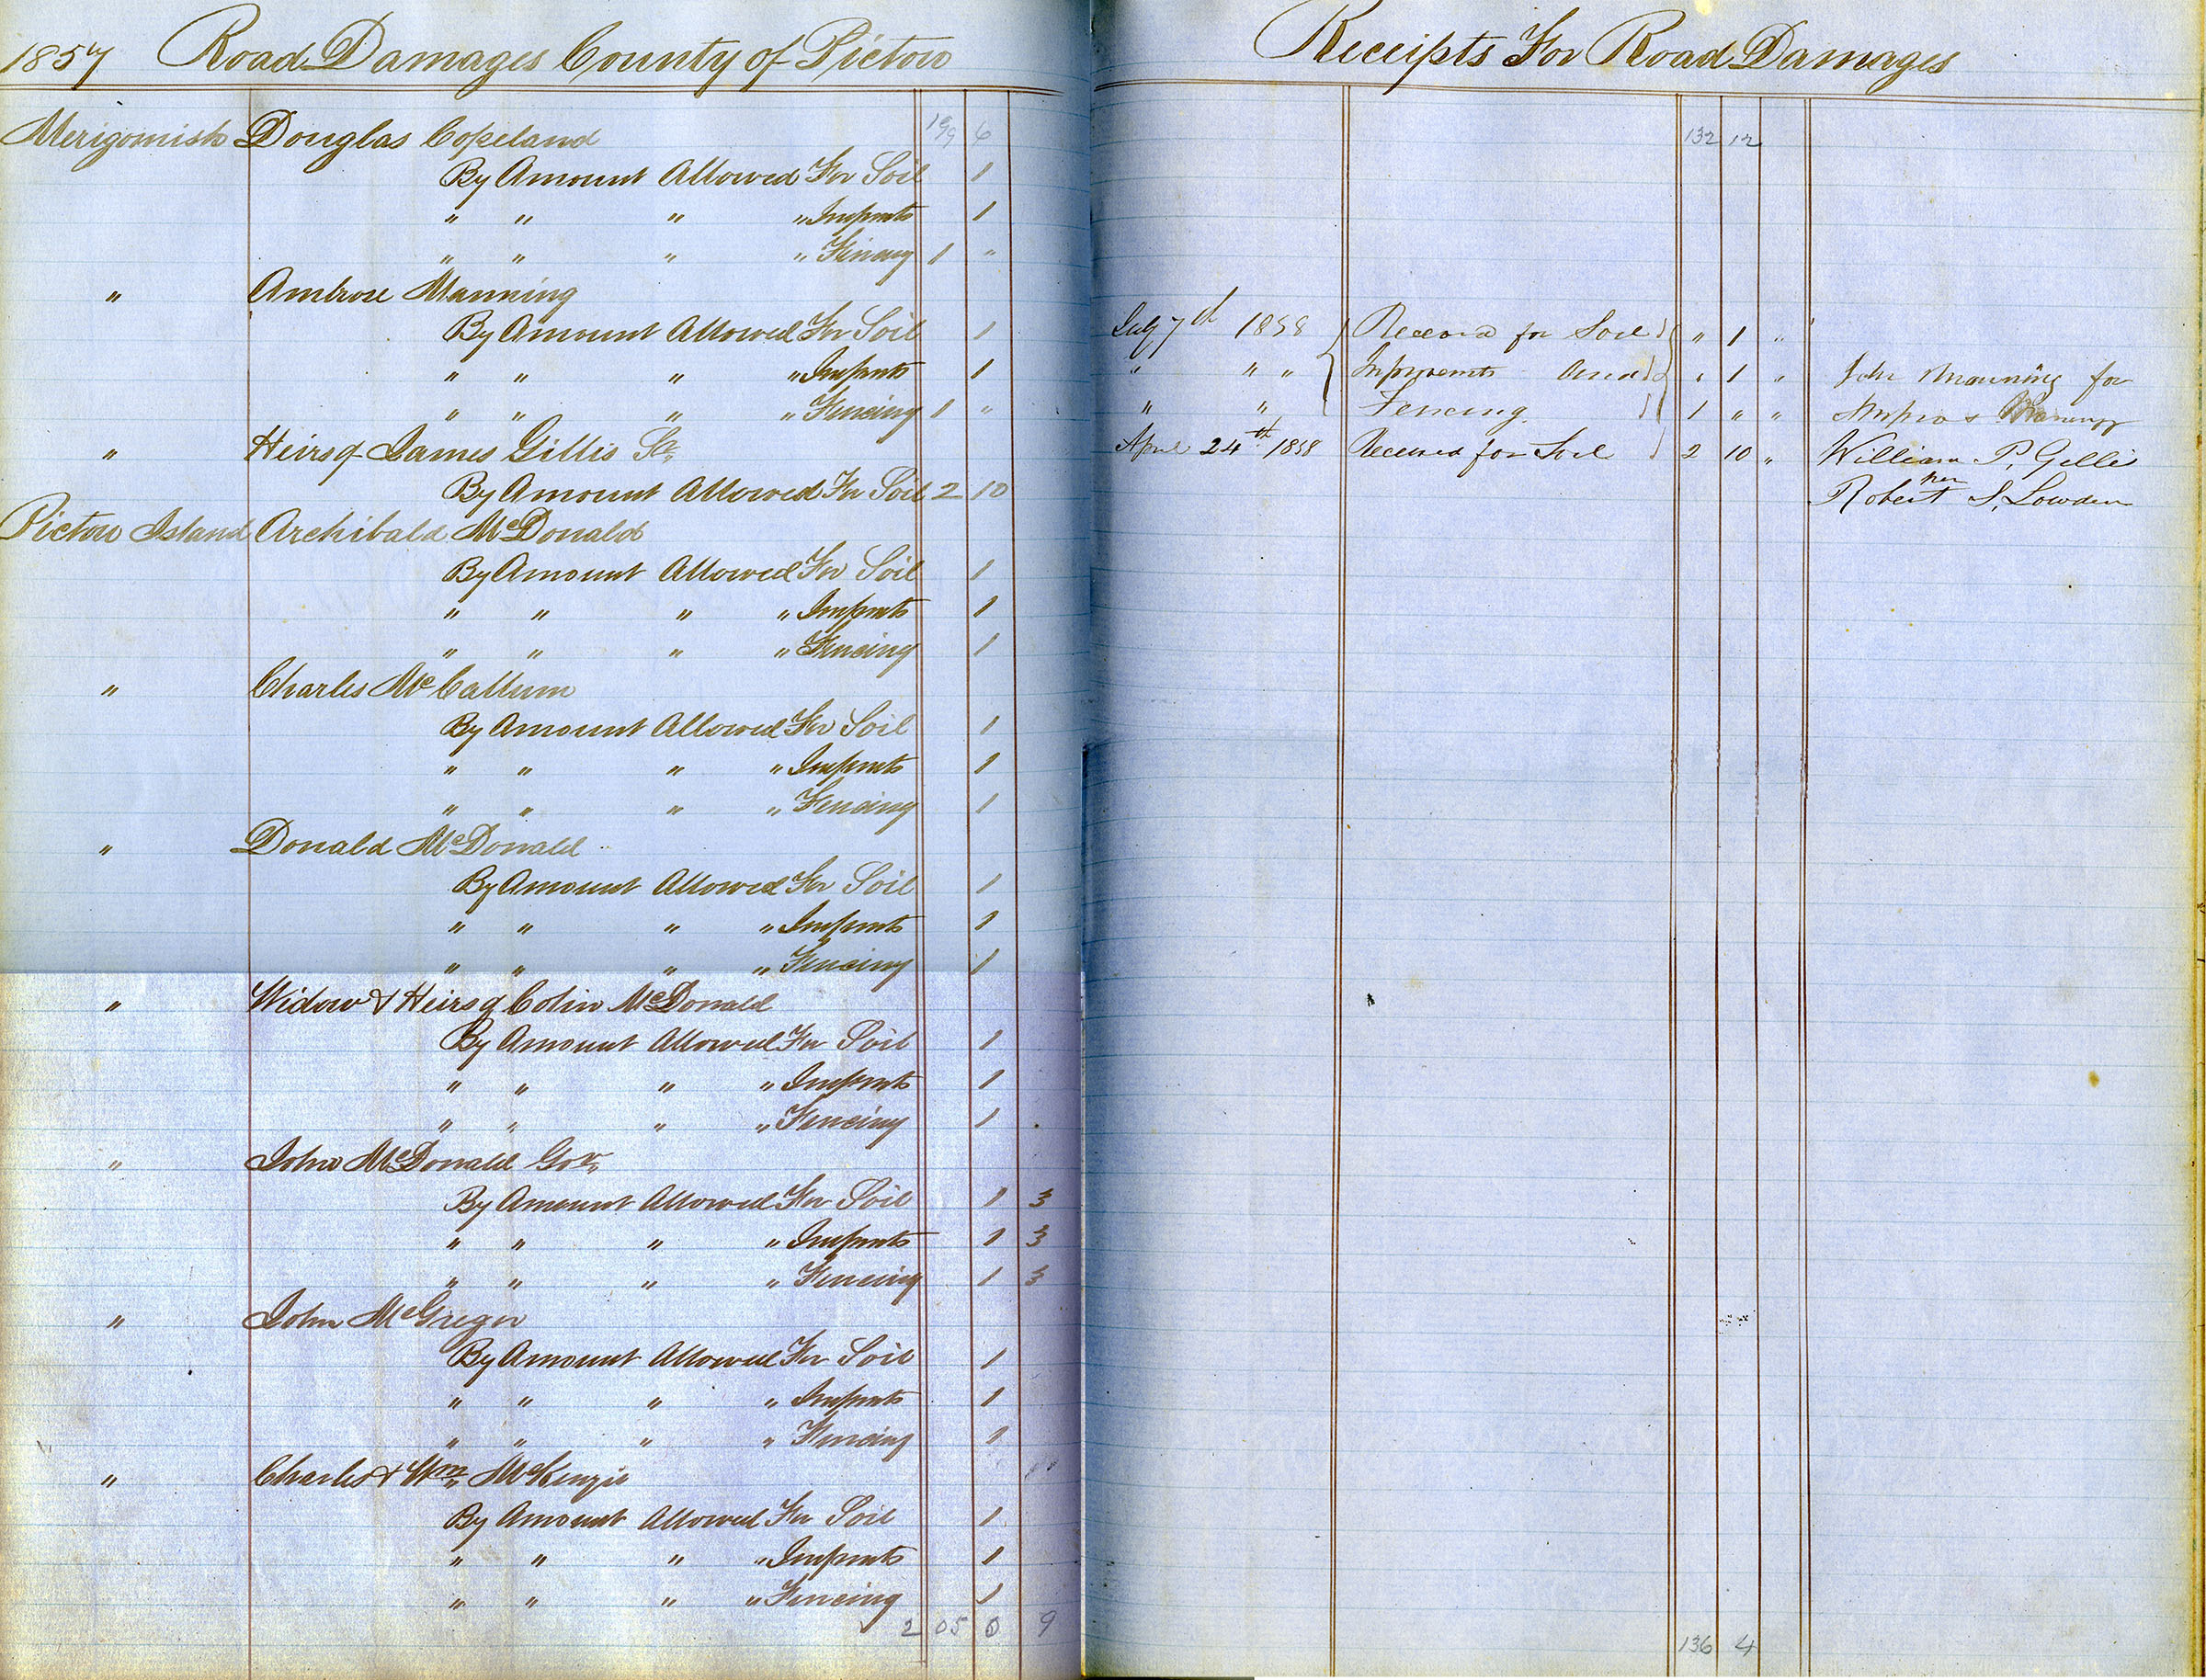 1857 Road Damages County of Pictou
Merigomish Douglas Copeland 199 6
By Amount Allowed For Soil 1
" " " " Impmts 1
" " " " Fencing 1 "
" Ambrose Manning
By Amount Allowed For Soil 1
" " " " Impmts 1
" " " " Fencing 1 "
" Heirs of James Gillis Sr
By Amount Allowed For Soil 2 10
Pictou Island Archibald McDonald
By Amount Allowed For Soil 1
" " " " Impmts 1
" " " " Fencing 1
" Charles McCallum
By Amount Allowed For Soil 1
" " " " Impmts 1
" " " " Fencing 1
" Donald McDonald
By Amount Allowed For Soil 1
" " " " Impmts 1
" " " " Fencing 1
" Widow & Heirs of Colin McDonald
By Amount Allowed For Soil 1
" " " " Impmts 1
" " " " Fencing 1
" John McDonald Gov
By Amount Allowed For Soil 1 3
" " " " Impmts 1 3
" " " " Fencing 1 3
" John McGregor
By Amount Allowed For Soil 1
" " " " Impmts 1
" " " " Fencing 1
" Charles & Wm McKenzie
By Amount Allowed For Soil 1
" " " " Impmts 1
" " " " Fencing 1
205 0 9
Receipts For Road Damages
132 12
July 7th 1858 Received for Soil " 1 "
" " " Improvemts And " 1 " John Manning for
" " Fencing 1 " " Manning
April 24th 1858 Received for Soil 2 10 " William P. Gillis
per
Robert S. Lowden
136 4